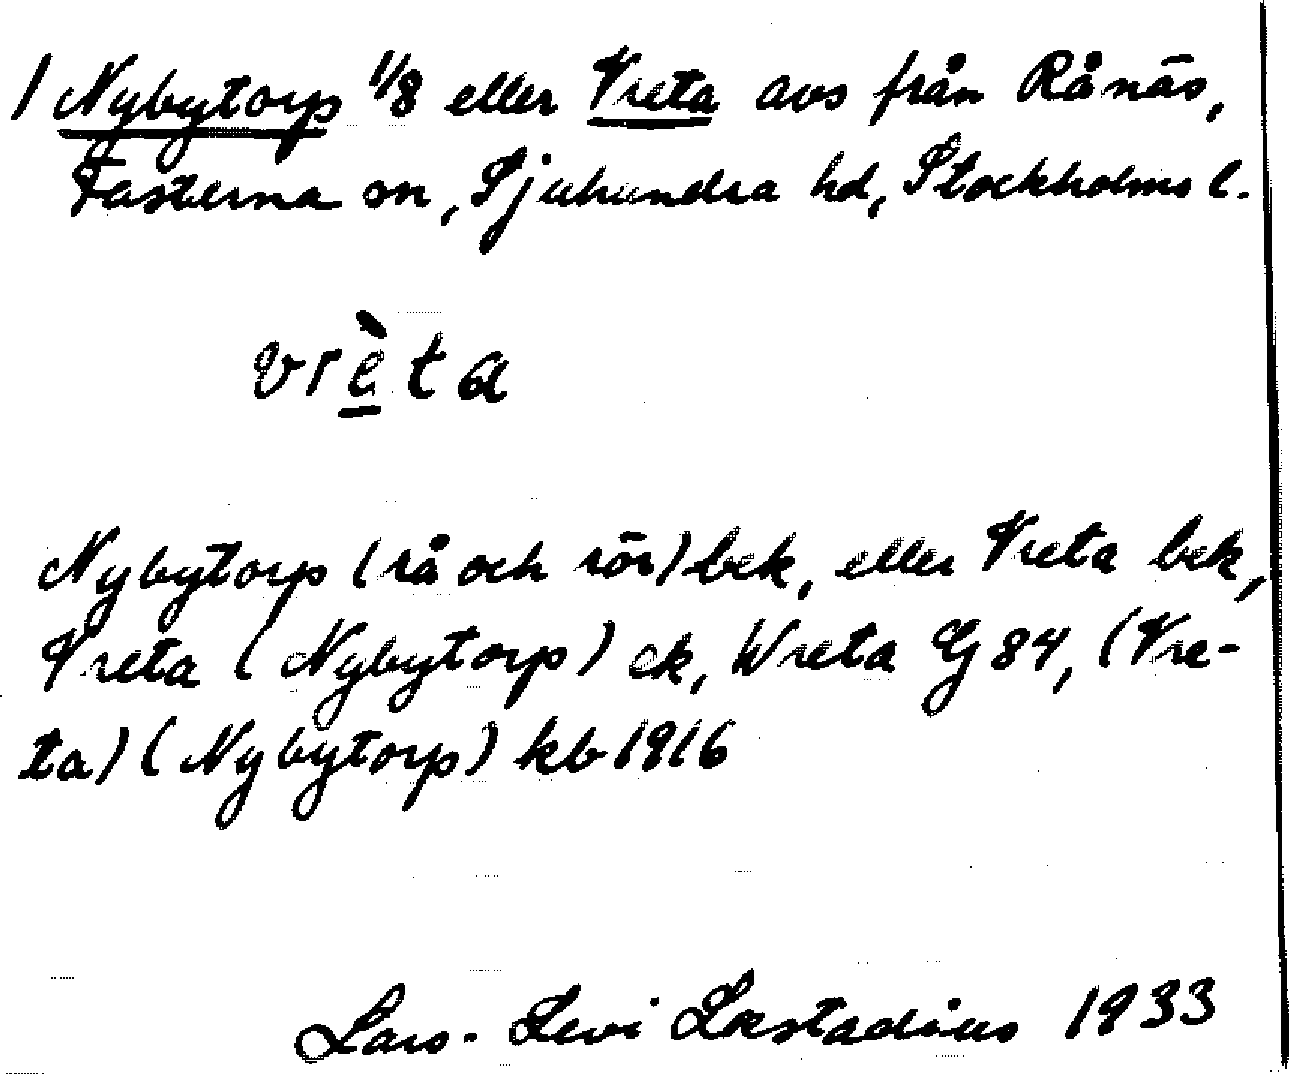 / Nybytorp 1/8 eller Vreta avs från Rånäs,
Fasterna sn, Sjuhundra hd, Stockholms l.
vrèta
Nybytorp (rå och rör) bek, eller Vreta bek,
Vreta (Nybytorp) ek, Wreta GJ 84, (Vre-
ta) (Nybytorp) kb 1916
Lars-Levi Læstadius 1933